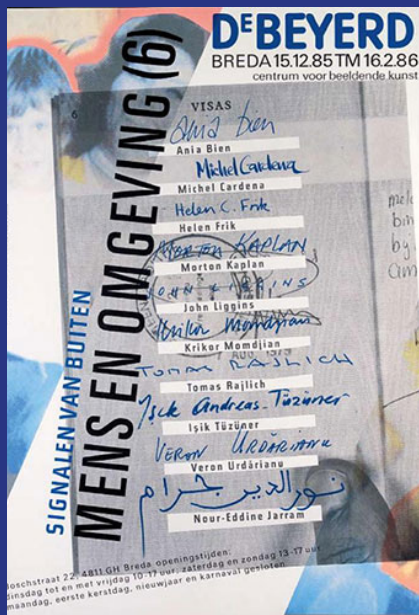 DeBEYERD
BREDA 15.12.85 TM 16.2.86
centrum voor beeldende kunst
MENS EN OMGEVING (6)
SIGNALEN VAN BUITEN
6
VISAS
Ania Bien
Ania Bien
Michel Cardena
Michel Cardena
Helen C. Frik
Helen Frik
MORTON KAPLAN
Morton Kaplan
JOHN LIGGINS
John Liggins
Krikor Momdjian
Krikor Momdjian
AUG. 1979
TOMAS RAJLICH
Tomas Rajlich
Işık Andreas-Tüzüner
Işik Tüzüner
VERON URDĂRIANU
Veron Urdărianu
نورالدين جرام
Nour-Eddine Jarram
oschstraat 22, 4811 GH Breda openingstijden:
dinsdag tot en met vrijdag 10-17 uur, zaterdag en zondag 13-17 uur
maandag, eerste kerstdag, nieuwjaar en karnaval gesloten